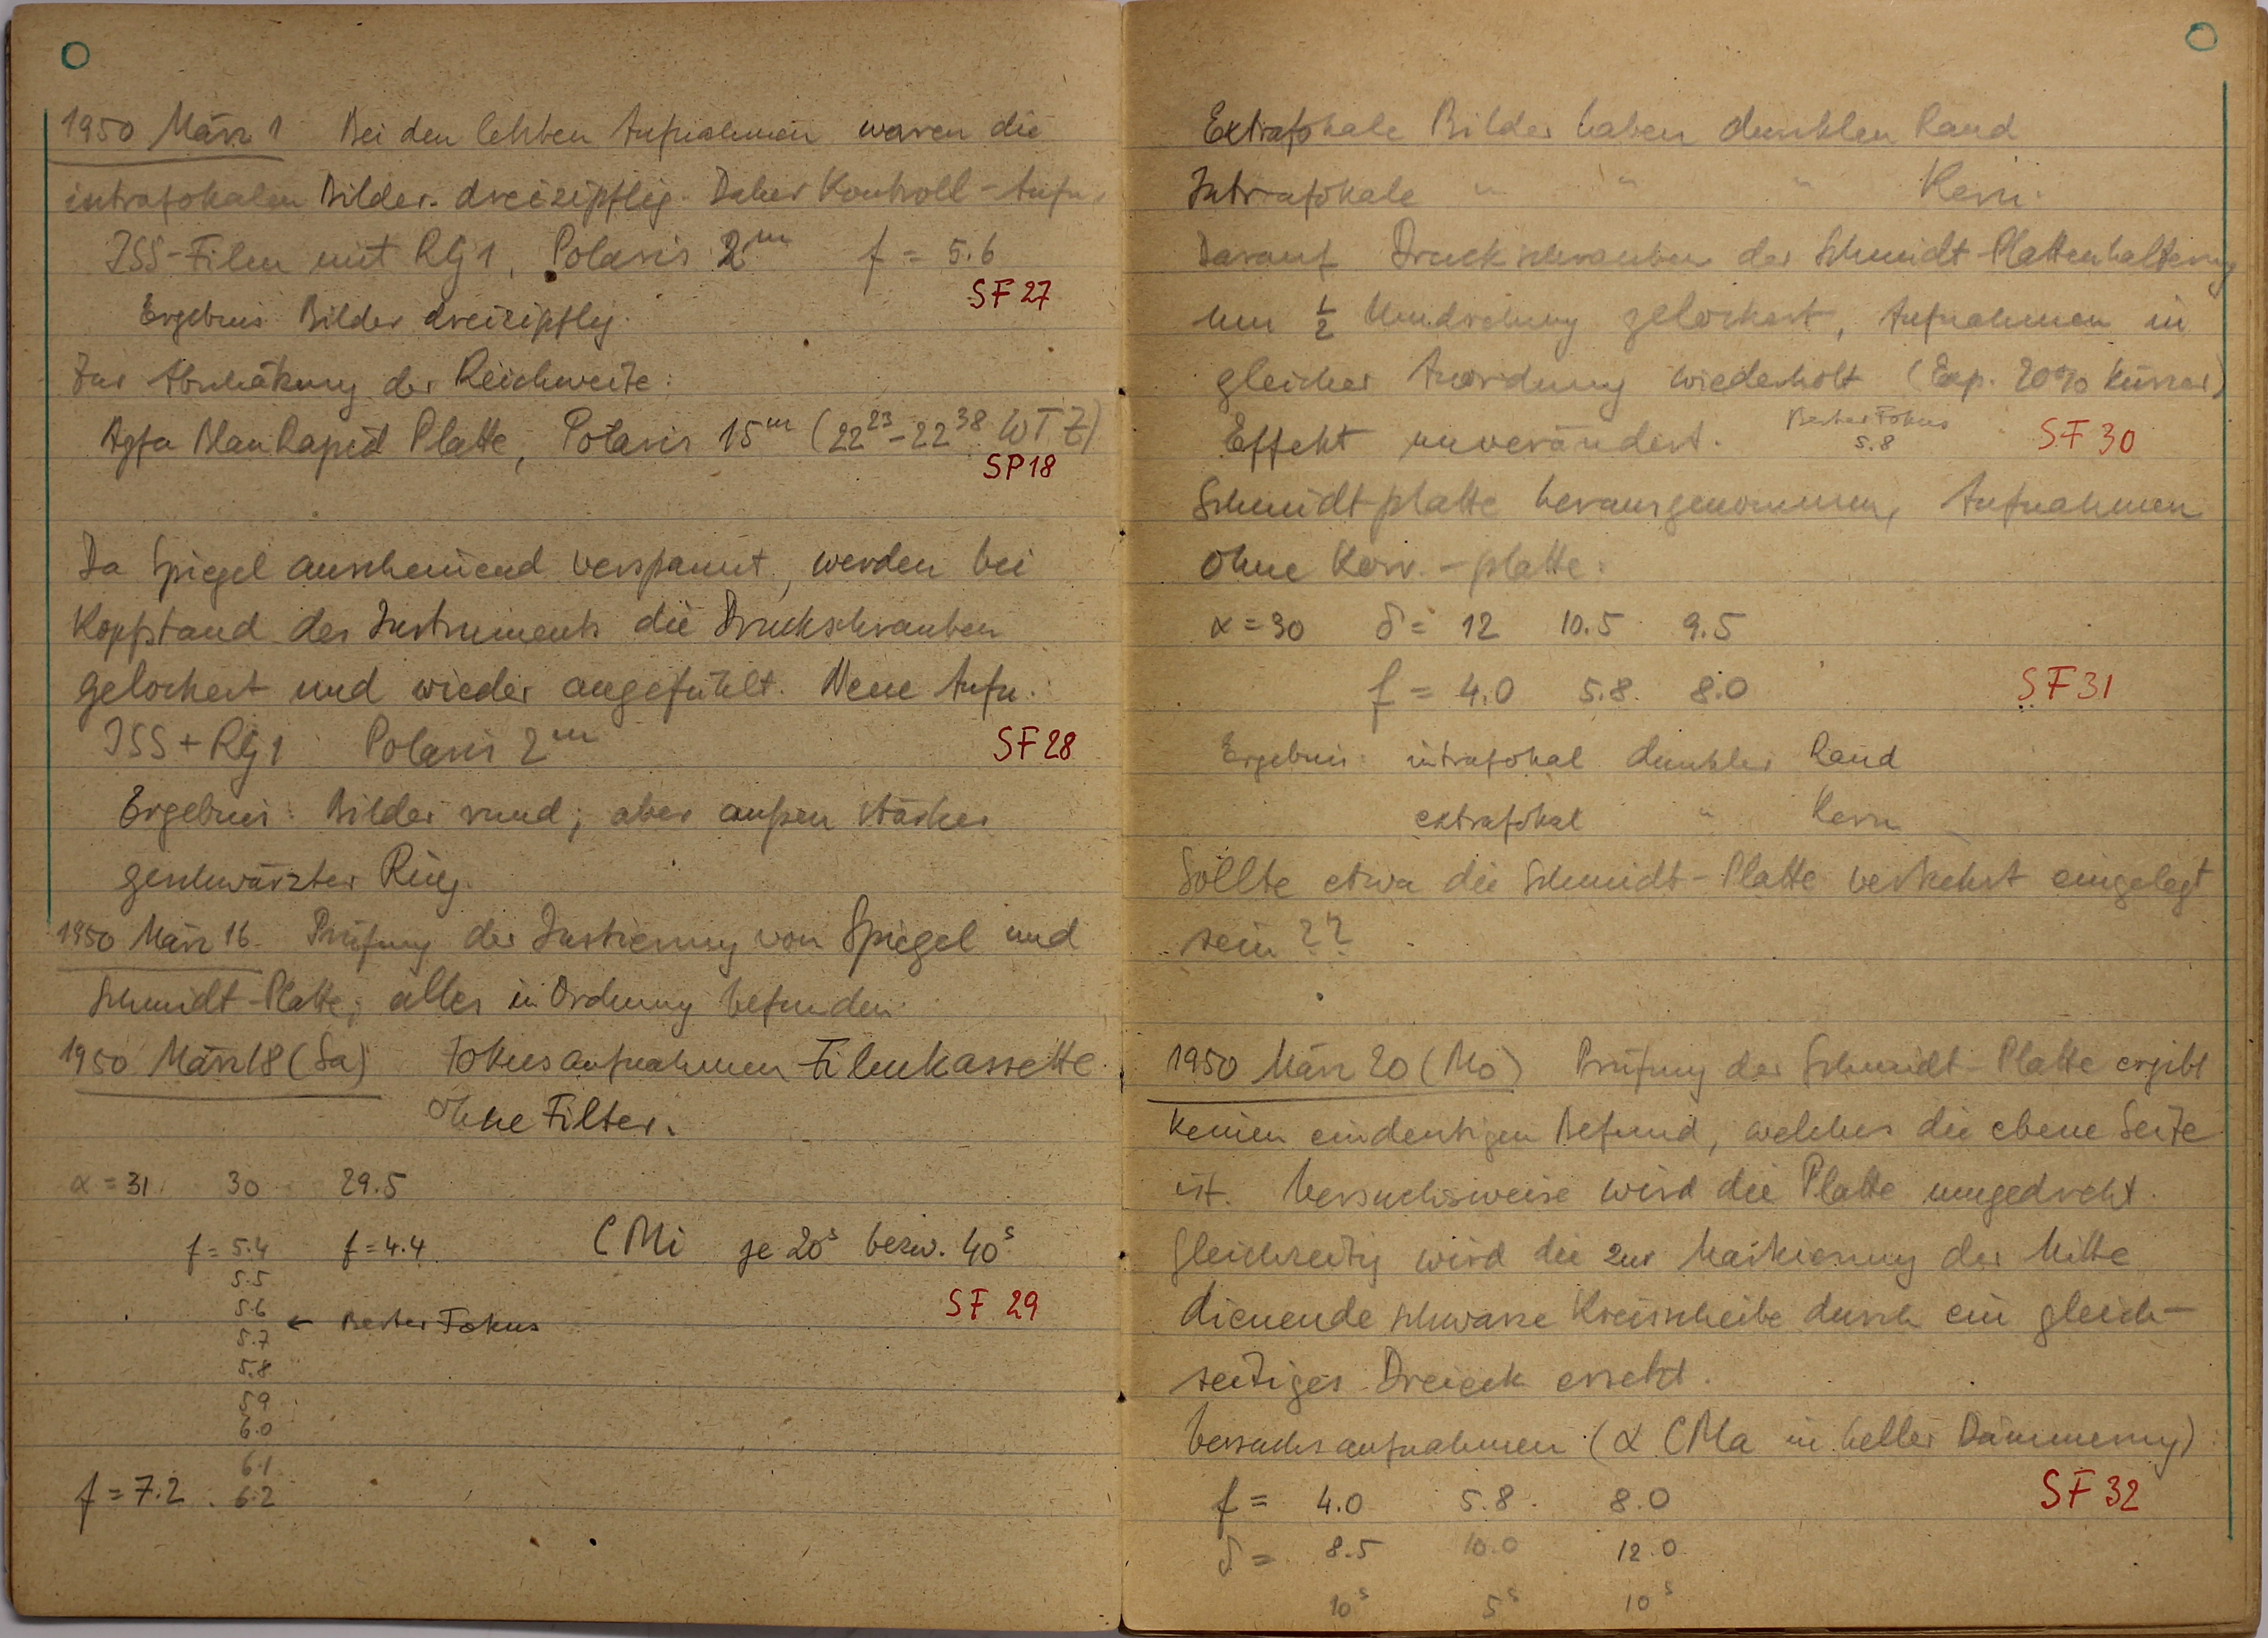 1950 März 1 Bei den letzten Aufnahmen waren die
intrafokalen Bilder dreizipflig. Daher Kontroll-Aufn.
ISS-Film mit RG1, Polaris 2ᵐ f = 5.6
SF 27
Ergebnis Bilder dreizipflig.
Zur Abschätzung der Reichweite:
Agfa Blau Rapid Platte, Polaris 15ᵐ (22²³-22³⁸ WTZ)
SP18
Da Spiegel anscheinend verspannt, werden bei
Kopfstand des Instruments die Druckschrauben
gelockert und wieder angefühlt. Neue Aufn.
ISS + RG1 Polaris 2ᵐ SF 28
Ergebnis: Bilder rund; aber außen starker
geschwärzter Ring.
1950 März 16. Prüfung der Justierung von Spiegel und
Schmidt-Platte; alles in Ordnung befunden.
1950 März 18 (Sa) Fokusaufnahmen Filmkassette
Ohne Filter.
α = 31 30 29.5
f = 5.4 f = 4.4 CMi je 20ˢ bezw. 40ˢ
5.5
5.6 SF 29
← Bester Fokus
5.7
5.8
5.9
6.0
6.1
f = 7.2 6.2
Extrafokale Bilder haben dunklen Rand
Intrafokale " " " Kern.
Darauf Druckschrauben der Schmidt-Plattenhalterung
um ½ Umdrehung gelockert, Aufnahmen in
gleicher Anordnung wiederholt (Exp. 20% kürzer)
Effekt unverändert. Bester Fokus 5.8 SF 30
Schmidtplatte herausgenommen, Aufnahmen
ohne Korr.-platte:
α = 30 δ = 12 10.5 9.5
f = 4.0 5.8 8.0 SF 31
Ergebnis: intrafokal dunkler Rand
extrafokal " Kern
Sollte etwa die Schmidt-Platte verkehrt eingelegt
sein ??
1950 März 20 (Mo) Prüfung der Schmidt-Platte ergibt
keinen eindeutigen Befund, welches die ebene Seite
ist. Versuchsweise wird die Platte umgedreht.
Gleichzeitig wird die zur Markierung der Mitte
dienende schwarze Kreisscheibe durch ein gleich-
seitiges Dreieck ersetzt.
Versuchsaufnahmen (α CMa in heller Dämmerung)
f = 4.0 5.8 8.0 SF 32
δ = 8.5 10.0 12.0
10ˢ 5ˢ 10ˢ